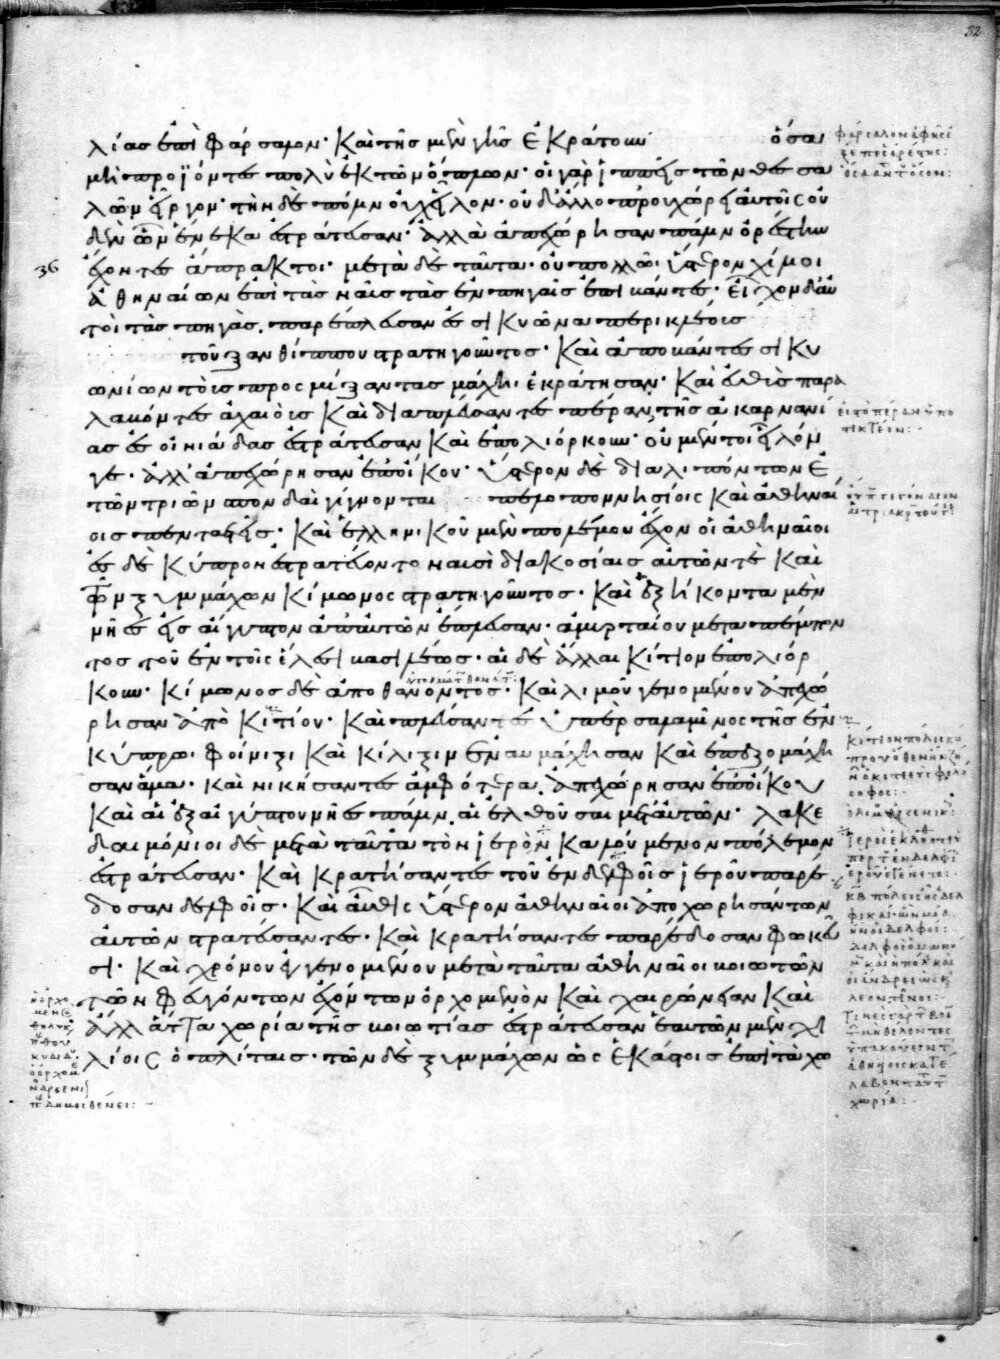 λίας ἐπὶ Φάρσαλον· Καὶ τῆς μὲν γῆς ἐκράτουν ὅσα
μὴ προϊόντες πολὺ ἐκ τῶν ὅπλων· οἱ γὰρ ἱππῆς τῶν θεσσα
λῶν εἶργον· τὴν δὲ πόλιν οὐχ εἷλον· οὐδ' ἄλλο προυχώρει αὐτοῖς οὐ
δὲν ὧν ἕνεκα ἐστράτευσαν· ἀλλὰ ἀπεχώρησαν πάλιν ὀρέστην
36 ἔχοντες ἄπρακτοι· μετὰ δὲ ταῦτα οὐ πολλῶ ὕστερον χίλιοι
ἀθηναίων ἐπὶ τὰς ναῦς τὰς ἐν πηγαῖς ἐπιβάντες· εἶχον δ' αὐ
τοὶ τὰς πηγὰς, παρέπλευσαν ἐς σικυῶνα περικλέους
τοῦ ξανθίππου στρατηγοῦντος· Καὶ ἀποβάντες σικυ
ωνίων τοὺς προσμίξαντας μάχηι ἐκράτησαν· Καὶ εὐθὺς παρα
λαβόντες ἀχαιοὺς Καὶ διαπλεύσαντες πέραν, τῆς ἀκαρνανί
ας ἐς οἰνιάδας ἐστράτευσαν Καὶ ἐπολιόρκουν· οὐ μέντοι εἷλόν
γε· ἀλλ' ἀπεχώρησαν ἐπ' οἴκου· ὕστερον δὲ διαλιπόντων ἐ
τῶν τριῶν σπονδαὶ γίγνονται πελοποννησίοις Καὶ ἀθηναί
οις πενταετεῖς· Καὶ ἑλληνικοῦ μὲν πολέμου ἔσχον οἱ ἀθηναῖοι
ἐς δὲ Κύπρον ἐστρατεύοντο ναυσὶ διακοσίαις αὐτῶν τὲ Καὶ
τῶν ξυμμάχων Κίμωνος στρατηγοῦντος· Καὶ ἑξήκοντα μὲν
νῆες ἐς αἴγυπτον ἀπ' αὐτῶν ἔπλευσαν· ἀμυρταίου μεταπέμπον
τος τοῦ ἐν τοῖς ἕλεσι βασιλέως· αἱ δὲ ἄλλαι Κίτιον ἐπολιόρ
κουν· Κίμωνος δὲ ἀποθανόντος· Καὶ λιμοῦ γενομένου ἀπεχώ
ρησαν ἀπὸ Κιτίου· Καὶ πλεύσαντες ὑπὲρ σαλαμῖνος τῆς ἐν
Κύπρω· φοίνιξι Καὶ Κίλιξιν ἐναυμάχησαν Καὶ ἐπεζομάχη
σαν ἅμα· Καὶ νικήσαντες ἀμφότερα, ἀπεχώρησαν ἐπ' οἴκου
Καὶ αἱ ἐξ αἰγύπτου νῆες πάλιν, αἱ ἐλθοῦσαι μετ' αὐτῶν· λακε
δαιμόνιοι δὲ μετὰ ταῦτα τὸν ἱερὸν Καλούμενον πόλεμον
ἐστράτευσαν· Καὶ Κρατήσαντες τοῦ ἐν δελφοῖς ἱεροῦ παρέ
δοσαν δελφοῖς· Καὶ αὖθις ὕστερον ἀθηναῖοι ἀποχωρησάντων
αὐτῶν στρατεύσαντες· Καὶ κρατήσαντες παρέδοσαν φωκεῦ
σι· Καὶ χρόνου ἐγγενομένου μετὰ ταῦτα ἀθηναῖοι βοιωτῶν
τῶν φευγόντων ἐχόντων ὀρχομενὸν Καὶ χαιρώνειαν Καὶ
ἄλλ' ἄττα χωρία τῆς βοιωτίας ἐστράτευσαν ἑαυτῶν μὲν χι
λίοις ὁπλίταις· τῶν δὲ ξυμμάχων ὡς ἑκάστοις ἐπὶ τὰ χω
32